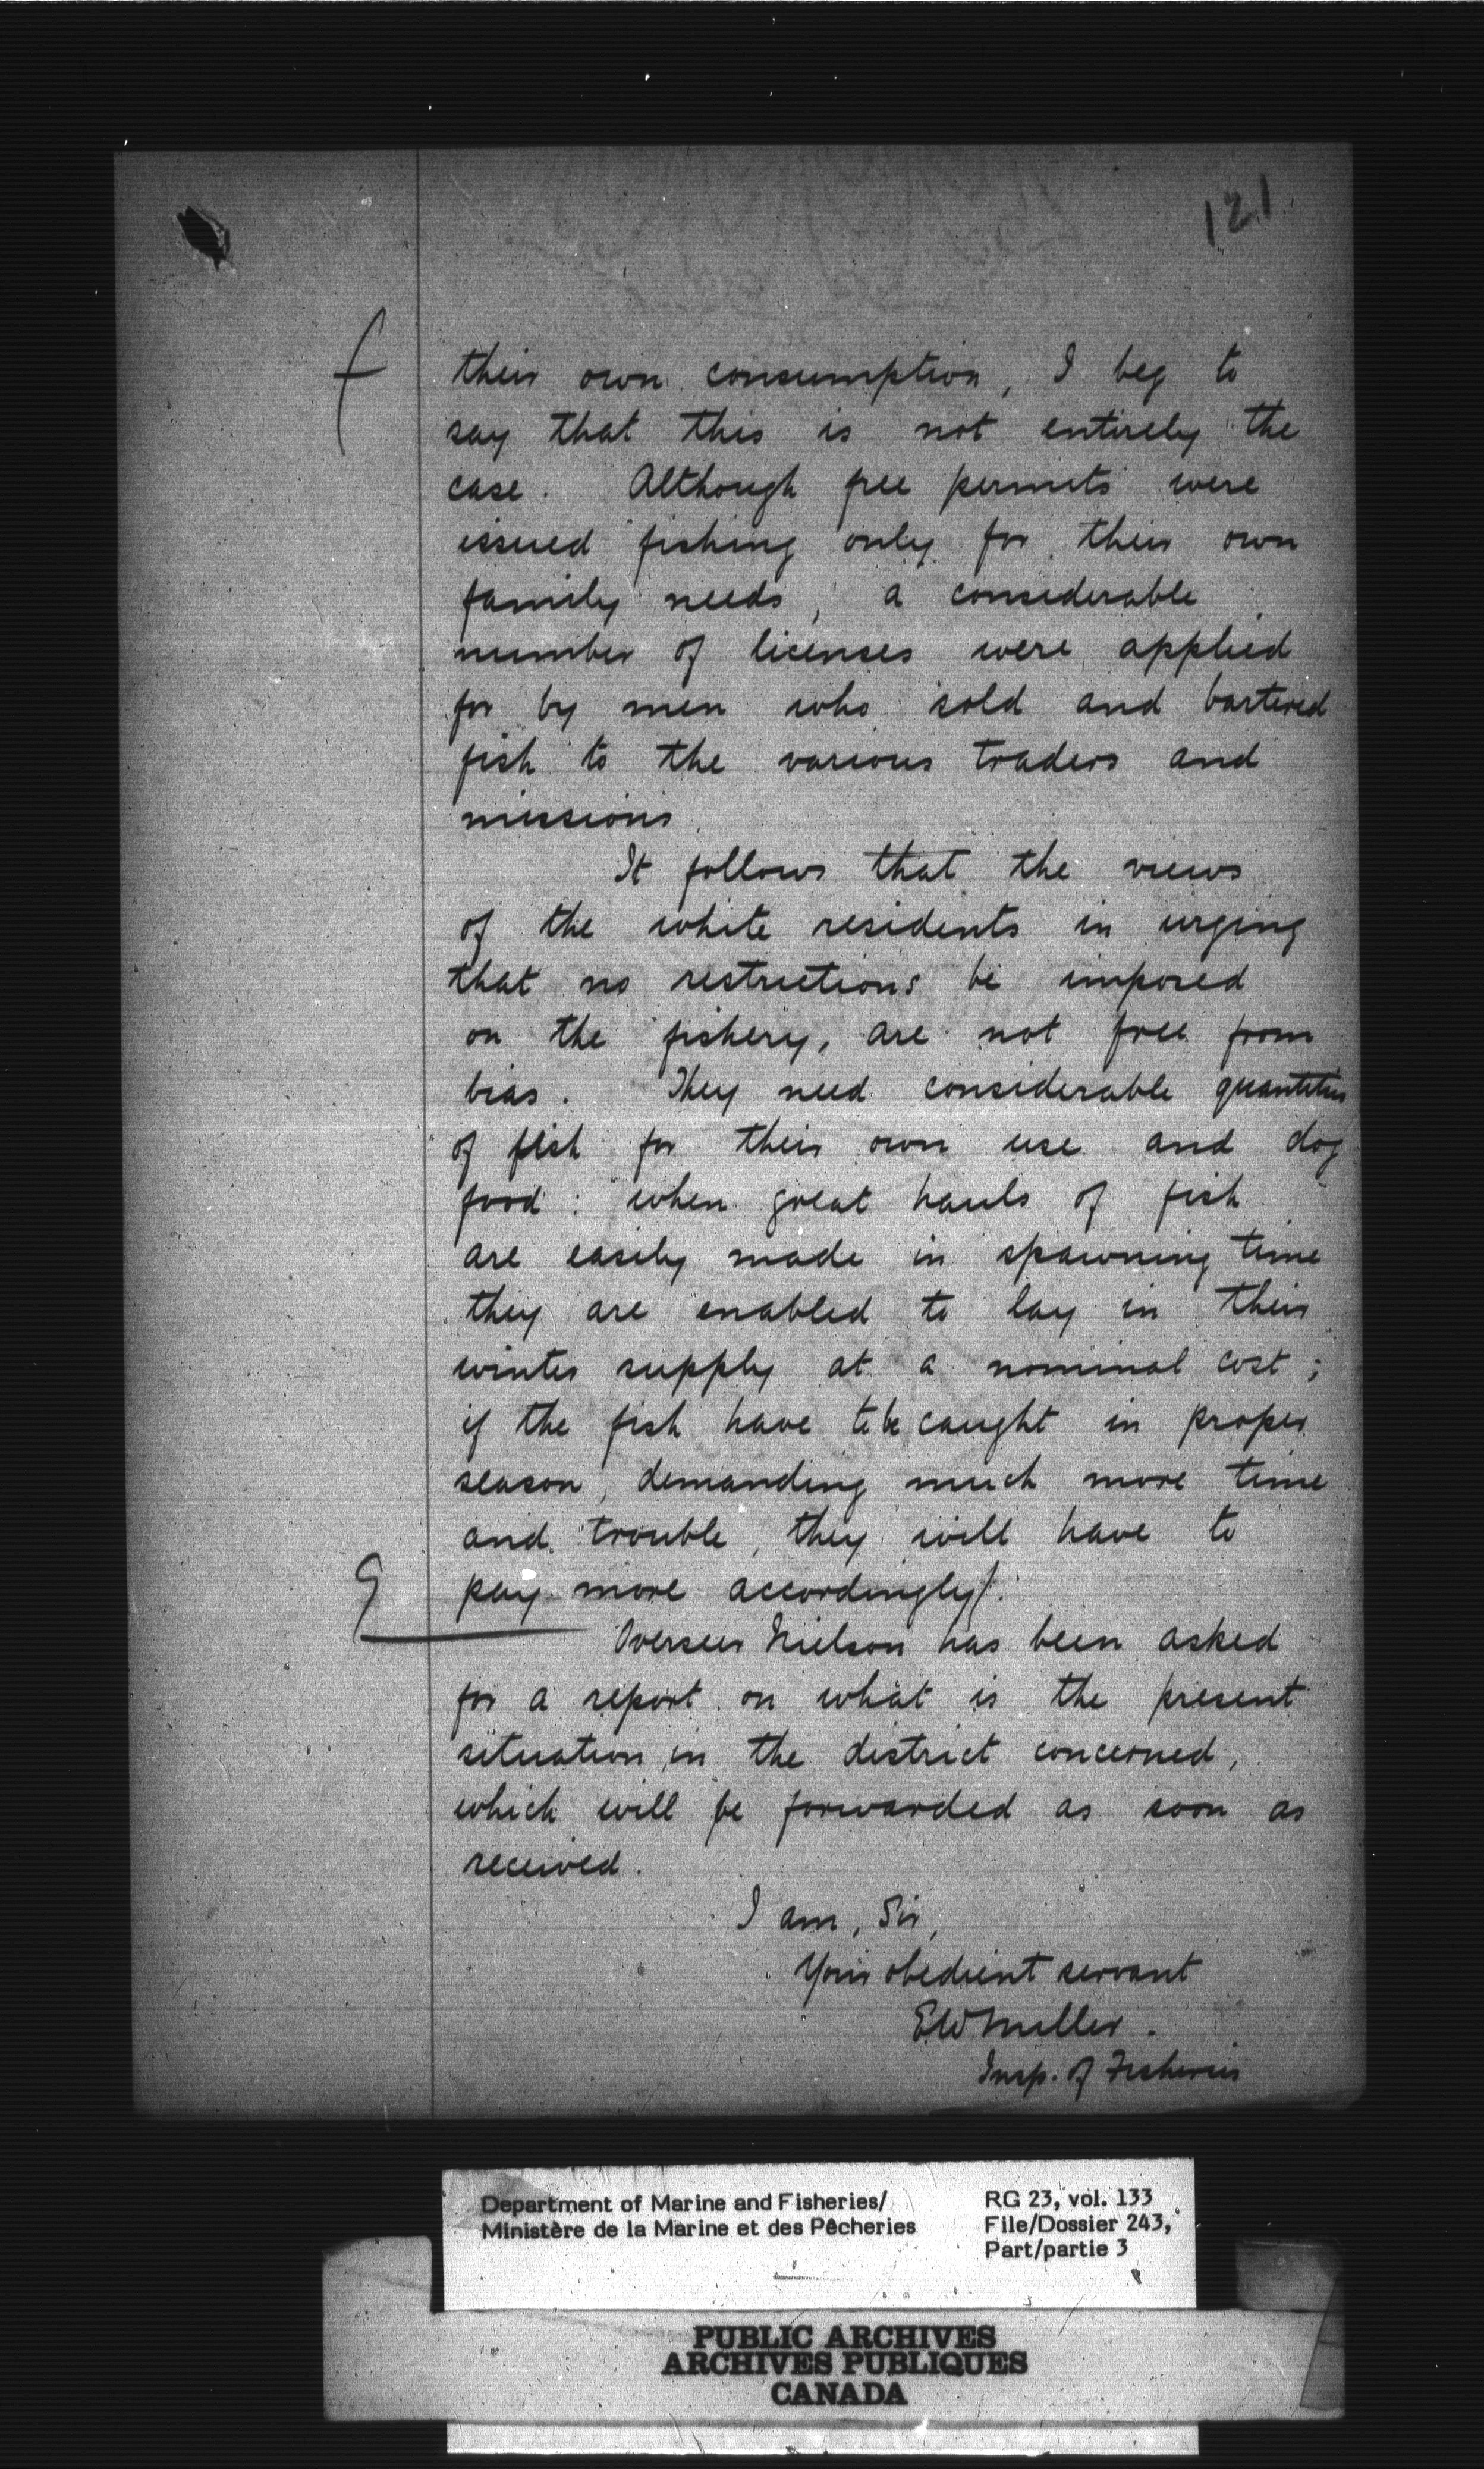 121
f
their own consumption, I beg to
say that this is not entirely the
case. Although free permits were
issued fishing only for their own
family needs, a considerable
number of licenses were applied
for by men who sold and bartered
fish to the various traders and
missions.
It follows that the views
of the white residents in urging
that no restrictions be imposed
on the fishery, are not free from
bias. They need considerable quantities
of fish for their own use and dog
food: when great hauls of fish
are easily made in spawning time
they are enabled to lay in their
winter supply at a nominal cost;
if the fish have to be caught in proper
season, demanding much more time
and trouble, they will have to
g
pay more accordingly/.
Overseer Nielson has been asked
for a report on what is the present
situation in the district concerned,
which will be forwarded as soon as
received.
I am, Sir,
Your obedient servant
EW Miller.
Insp. of Fisheries
Department of Marine and Fisheries/
Ministère de la Marine et des Pêcheries
RG 23, vol. 133
File/Dossier 243,
Part/partie 3
PUBLIC ARCHIVES
ARCHIVES PUBLIQUES
CANADA